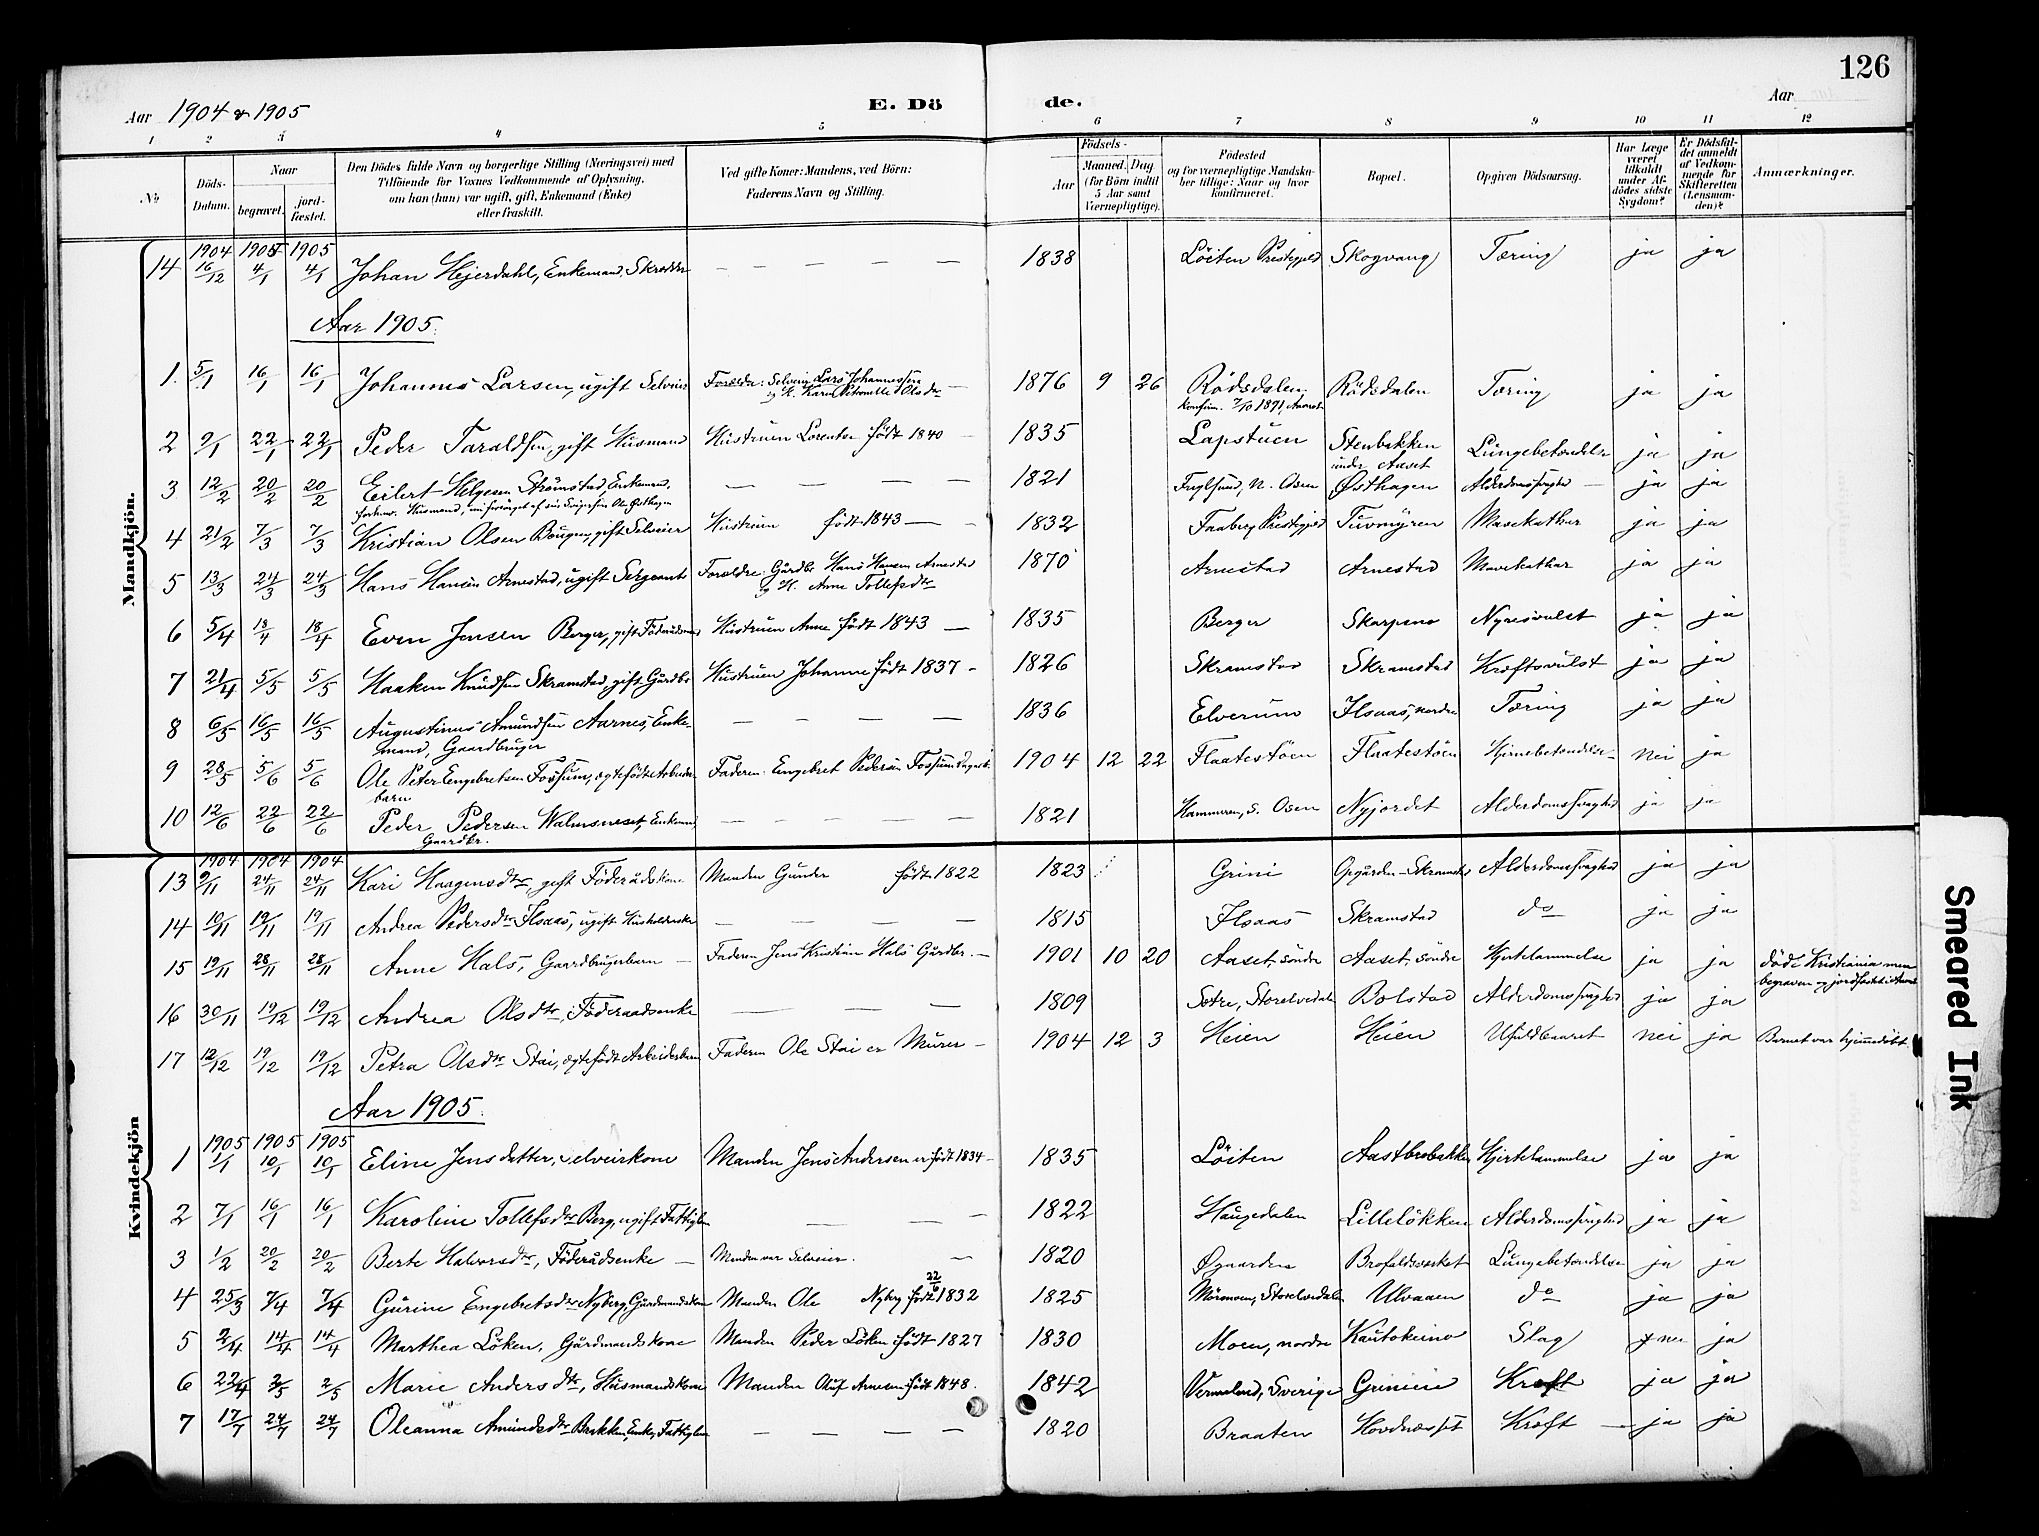 126
Aar 1904 & 1905
E. Dö de.
Aar
1 2 3 4 5 6 7 8 9 10 11 12
No
Döds-Datum.
Naar
begravet.
jord-fæstet.
Den Dödes fulde Navn og borgerlige Stilling (Næringsvei) med
Tilföiende for Voxnes Vedkommende af Oplysning,
om han (hun) var ugift, gift, Enkemand (Enke)
eller fraskilt.
Ved gifte Koner: Mandens, ved Börn:
Faderens Navn og Stilling.
Födsels-
Aar
Maaned. Dag
(for Börn indtil
5 Aar samt
Værnepligtige).
Födested
og for værnepligtige Mandska-
ber tillige: Naar og hvor
konfirmeret.
Bopæl.
Opgiven Dödsaarsag.
Har Læge
været
tilkaldt
under Af-
dödes sidste
Sygdom?
Er Dödsfal-
det anmeldt
af Vedkom-
mende for
Skifteretten
(Lensman-
den)?
Anmærkninger.
Mandkjön.
1904 1905 1905
14 16/12 4/1 4/1 Johan Hejerdahl, Enkemand, Skrædder — — — — 1838 Löiten Præstegjeld Skogvang Tæring ja ja
Aar 1905.
1. 5/1 16/1 16/1 Johannes Larsen, ugift Selveier Forældre: Selveier Lars Johannessen — 1876 9 26 Rödsdalen, Rödsdalen Tæring ja ja
og H. Karen Petronelle Olsdr konfirm. 7/10 1891, Aamot
2 9/1 22/1 22/1 Peder Taraldsen, gift Husmand Hustruen Lorentse född 1840 1835 Lapstuen Stenbakken Lungebetændelse ja ja
under Aaset
3 12/2 20/2 20/2 Eilert Helgesen Strömstad, Enkemand, — — — — 1821 Fuglsund, N. Osen Østhagen Alderdomssvaghed — ja ja
4 21/2 7/3 7/3 Kristian Olsen Bougen, gift Selveier Hustruen född 1843 — 1832 Faaberg Præstegjeld Tuvmyren Mavekathar ja ja
5 13/3 24/3 24/3 Hans Hansen Arnestad, ugift Sergeant Forældre: Gårdbr. Hans Hansen Arnestad 1870 Arnestad Arnestad Mavekathar ja ja
og H. Anne Tollefsdtr
6 5/4 18/4 18/4 Even Jensen Berger, gift Föderådsmand Hustruen Anne född 1843 — 1835 Berger Skarpsno Nyresvulst ja ja
7 21/4 5/5 5/5 Haaken Knudsen Skramstad, gift Gårdbr. Hustruen Johanne född 1837 - 1826 Skramstad Skramstad Kræftsvulst ja ja
8 6/5 16/5 16/5 Augustinus Amundsen Aarnes, Enke- — — — — 1836 Elverum Ilsaas, nordre Tæring ja ja
mand, Gaardbruger
9 28/5 5/6 5/6 Ole Peter Engebretsen Fossum, ægtefödt Arbeider- Faderen: Engebret Pedersen Fossum 1904 12 22 Flaatestöen Flaatestöen Hjernebetændelse nei ja
barn
10 12/6 22/6 22/6 Peder Pedersen Walmsneset, Enkemand, — — — — — 1821 Hammeren, S. Osen Nyjordet Alderdomssvaghed ja ja
Gaardbr.
Kvindekjön
1904 1904 1904
13 9/11 24/11 24/11 Kari Haagensdtr, gift Föderådskone Manden Gunder född 1822 1823 Grini Opgården-Skramstad Alderdomssvaghed ja ja
14 10/11 19/11 19/11 Andrea Pedersdtr Ilsaas, ugift Husholderske — — — — 1815 Ilsaas Skramstad do ja ja
15 19/11 28/11 28/11 Anne Hals, Gaardbrugerbarn — Faderen Jens Kristian Hals Gårdbr. — 1901 10 20 Aaset, söndre Aaset, söndre Hjertelammelse ja ja död i Kristiania men
begraven og jordfæstet i Aamot
16 30/11 19/12 19/12 Andrea Olsdtr, Föderaadsenke — — — 1809 Sotre, Storelvedalen Bolstad Alderdomssvaghed ja ja
17 12/12 19/12 19/12 Petra Olsdtr Stai, ægtefödt Arbeiderbarn Faderen Ole Stai er Murer - 1904 12 3 Heien Heien Ufuldbaaret nei ja Barnet var hjemmedöbt.
Aar 1905.
1905 1905 1905
1 1/1 10/1 10/1 Eline Jensdatter, Selveierkone Manden Jens Andersen er född 1834 - 1835 Löiten Aastbrobakken Hjertelammelse ja ja
2 7/1 16/1 16/1 Karoline Tollefsdtr Berg, ugift Fattiglem — — — 1822 Haugedalen Lillelökken Alderdomssvaghed ja ja
3 1/2 20/2 20/2 Berte Halvorsdtr, Föderådsenke — Manden var Selveier. — 1820 Øgaarden Brofaldværket Lungebetændelse ja ja
4 25/3 7/4 7/4 Gurine Engebretsdtr Nyberg, Gårdmandskone Manden Ole Nyberg född 22/6 1832 1825 Storelvedalen Ulvaaen do ja ja
5 2/4 14/4 14/4 Marthea Löken, Gårdmandskone Manden Peder Löken född 1827 1830 Moen, nordre Kautokeino Slag nei ja
6 22/4 2/5 2/5 Marie Andersdtr, Husmandskone Manden Oluf Arnesen född 1848. 1842 Vermeland, Sverige Grinien Kræft ja ja
7 17/7 24/7 24/7 Oleanna Amundsdtr Bakken, Enke, Fattiglem — — — — 1820 Braaten Hovdnæsset Kræft — ja ja
Smeared Ink